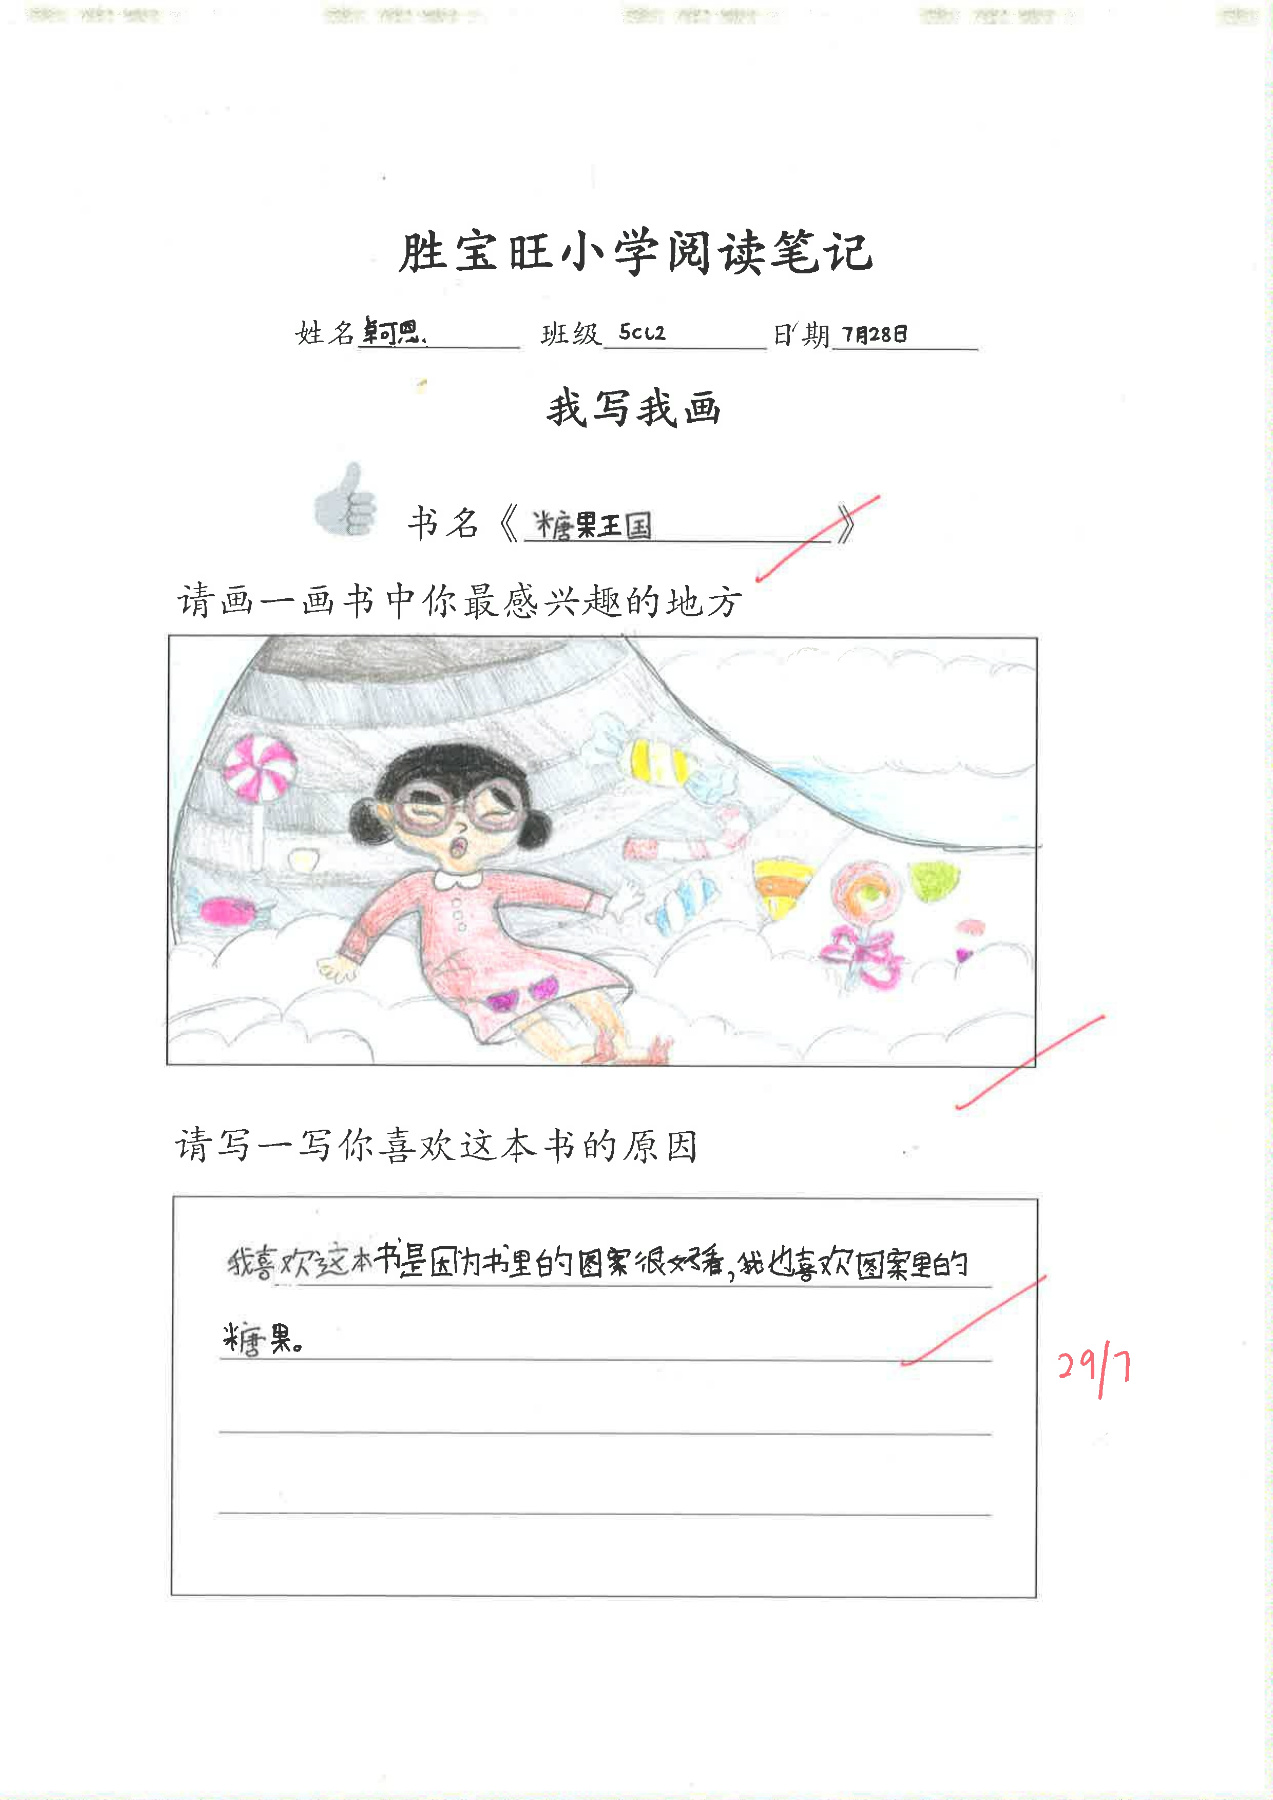 胜宝旺小学阅读笔记
姓名 卓可恩 班级 5CL2 日期 7月28日
我写我画
书名《糖果王国》
请画一画书中你最感兴趣的地方
请写一写你喜欢这本书的原因
我喜欢这本书是因为书里的图案很好看,我也喜欢图案里的
糖果。
29/7